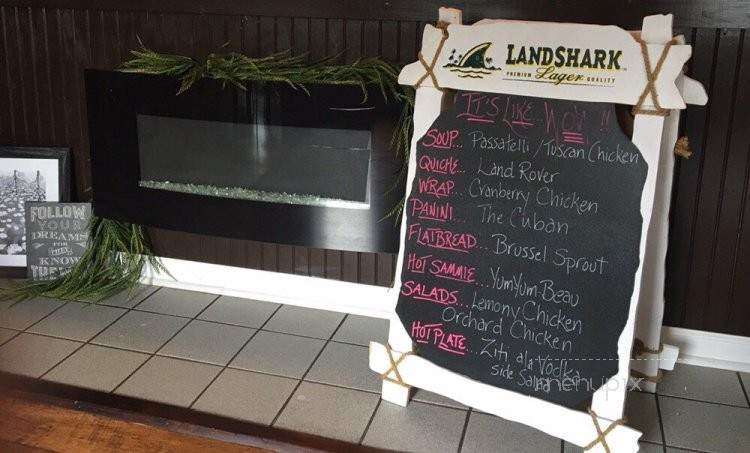 LANDSHARK
PREMIUM Lager QUALITY
IT'S LIKE WOW !!
SOUP... Passatelli / Tuscan Chicken
QUICHE... Land Rover
WRAP... Cranberry Chicken
PANINI... The Cuban
FLATBREAD... Brussel Sprout
HOT SAMMIE... YumYum Beau
SALADS... Lemony Chicken
Orchard Chicken
HOT PLATE... Ziti ala Vodka
side Salad
FOLLOW
YOUR
DREAMS
FOR
THEY
KNOW
THE
menupix